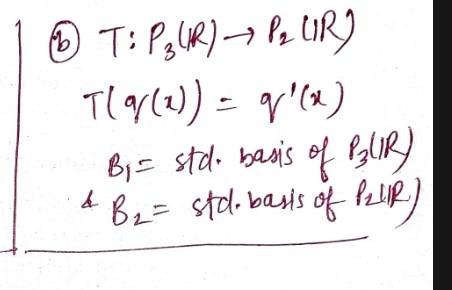 ⓑ T: P₃(ℝ) → P₂(ℝ)
T(q(x)) = q'(x)
B₁ = std. basis of P₃(ℝ)
& B₂ = std. basis of P₂(ℝ)